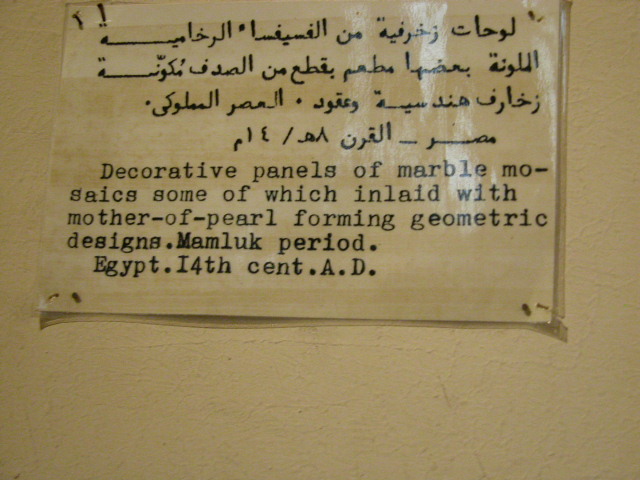 لوحات زخرفية من الفسيفساء الرخاميـــــة
الملونة بعضها مطعم بقطع من الصدف مُكوّنــــة
زخارف هندسيــة وعقود . العصر المملوكى.
مصــر ــ القرن ٨هـ/ ١٤م
Decorative panels of marble mo-
saics some of which inlaid with
mother-of-pearl forming geometric
designs.Mamluk period.
Egypt.I4th cent.A.D.